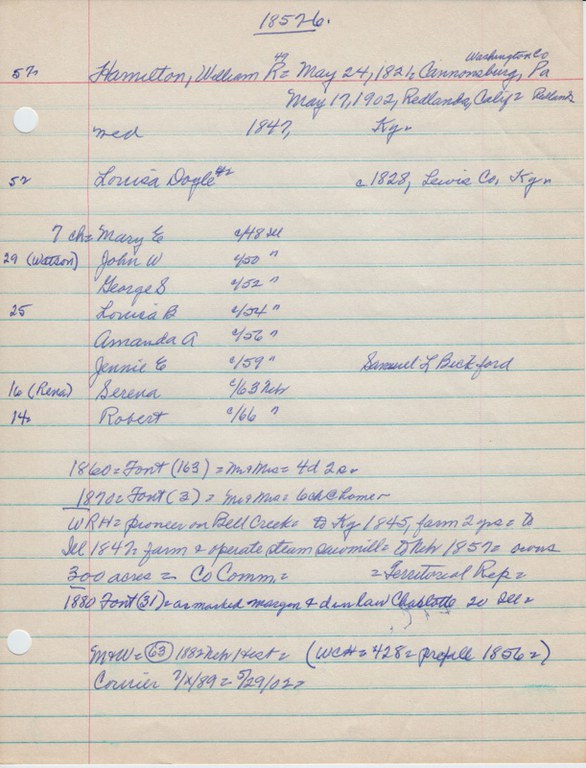 18526.
Washington Co
57. Hamilton, William R= 49 May 24, 1821, Cannonsburg, Pa
May 17, 1902, Redlands, Calif=
med 1847, Ky=
52 Louisa Doyle 42 c 1828, Lewis Co, Ky=
7 ch= Mary E c/48 Ill
29 (Watson) John W c/50 "
George S c/52 "
25 Louisa B c/54 "
Amanda A c/56 "
Jennie E c/59 " Samuel L Bickford
16 (Rena) Serena c/63 Neb
14= Robert c/66 "
1860= Font (163) = Mr & Mrs = 4d 2s=
1870= Font (3) = Mr & Mrs = 6 ch @ home=
WRH= pioneer on Bell Creek= to Ky 1845, farm 2 yrs= to
Ill 1847= farm & operate steam sawmill= to Neb 1857= owns
300 acres = Co Comm.= =Territorial Rep=
1880 Font (31) = as marked margin & d in law Charlotte 20 Ill=
M&W= 63 1882 Neb Hist= (WCH=428= prefile 1856=)
Courier 7/X/89= 5/29/02=